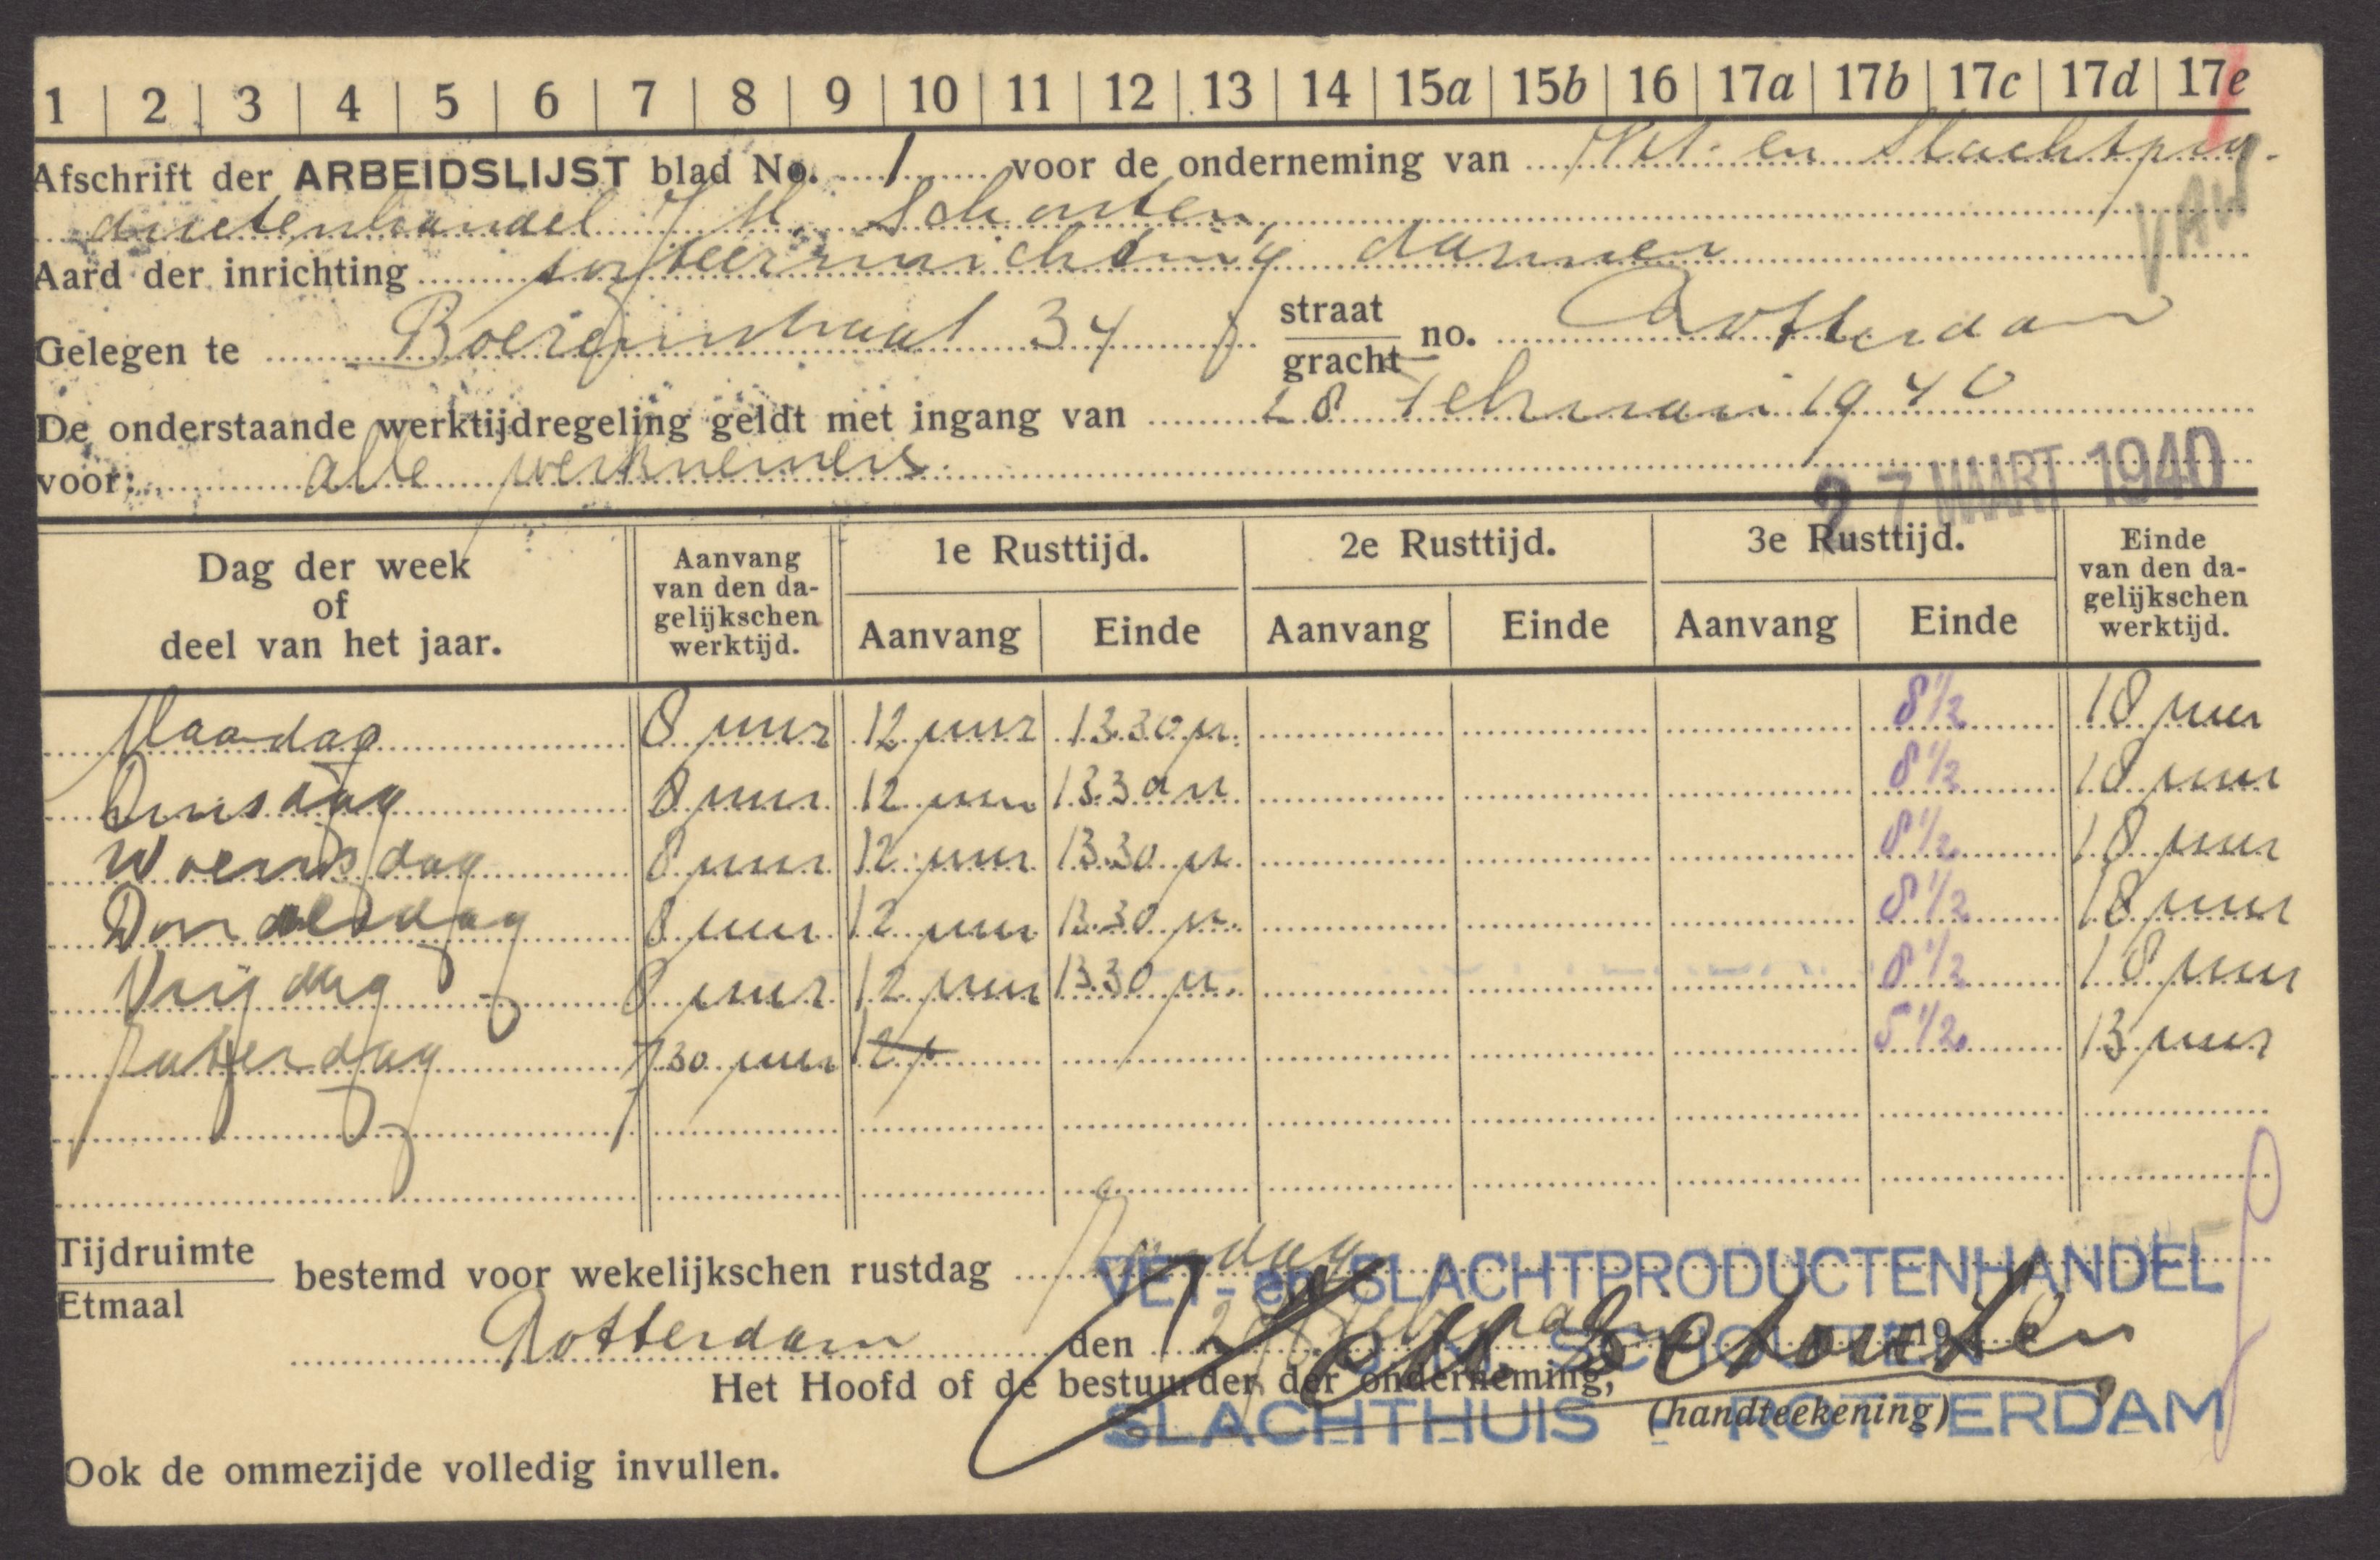 1 | 2 | 3 | 4 | 5 | 6 | 7 | 8 | 9 | 10 | 11 | 12 | 13 | 14 | 15a | 15b | 16 | 17a | 17b | 17c | 17d | 17e
Afschrift der ARBEIDSLIJST blad No. 1 voor de onderneming van Vet- en Slachtpro-
ductenhandel J M Schouten
VAW
Aard der inrichting sorteerinrichting darmen
Gelegen te 34 straat gracht no. Rotterdam
De onderstaande werktijdregeling geldt met ingang van 28 februari 1940
voor: alle werknemers
27 MAART 1940
Dag der week of deel van het jaar. Aanvang van den dagelijkschen werktijd. 1e Rusttijd. 2e Rusttijd. 3e Rusttijd. Einde van den dagelijkschen werktijd.
Aanvang Einde Aanvang Einde Aanvang Einde
Maandag 8 uur 12 uur 13.30 u. 8 1/2 18 uur
Dinsdag 8 uur 12 uur 13.30 u 8 1/2 18 uur
Woensdag 8 uur 12 uur 13.30 u. 8 1/2 18 uur
Donderdag 8 uur 12 uur 13.30 u. 8 1/2 18 uur
Vrijdag 8 uur 12 uur 13.30 u. 8 1/2 18 uur
Zaterdag 7.30 uur 12 u 5 1/2 13 uur
Tijdruimte
Etmaal
bestemd voor wekelijkschen rustdag Zondag
VET- en SLACHTPRODUCTENHANDEL
Rotterdam den 28 februari 19
J. M. SCHOUTEN
JM Schouten
Het Hoofd of de bestuurder der onderneming,
(handteekening)
SLACHTHUIS - ROTTERDAM
Ook de ommezijde volledig invullen.